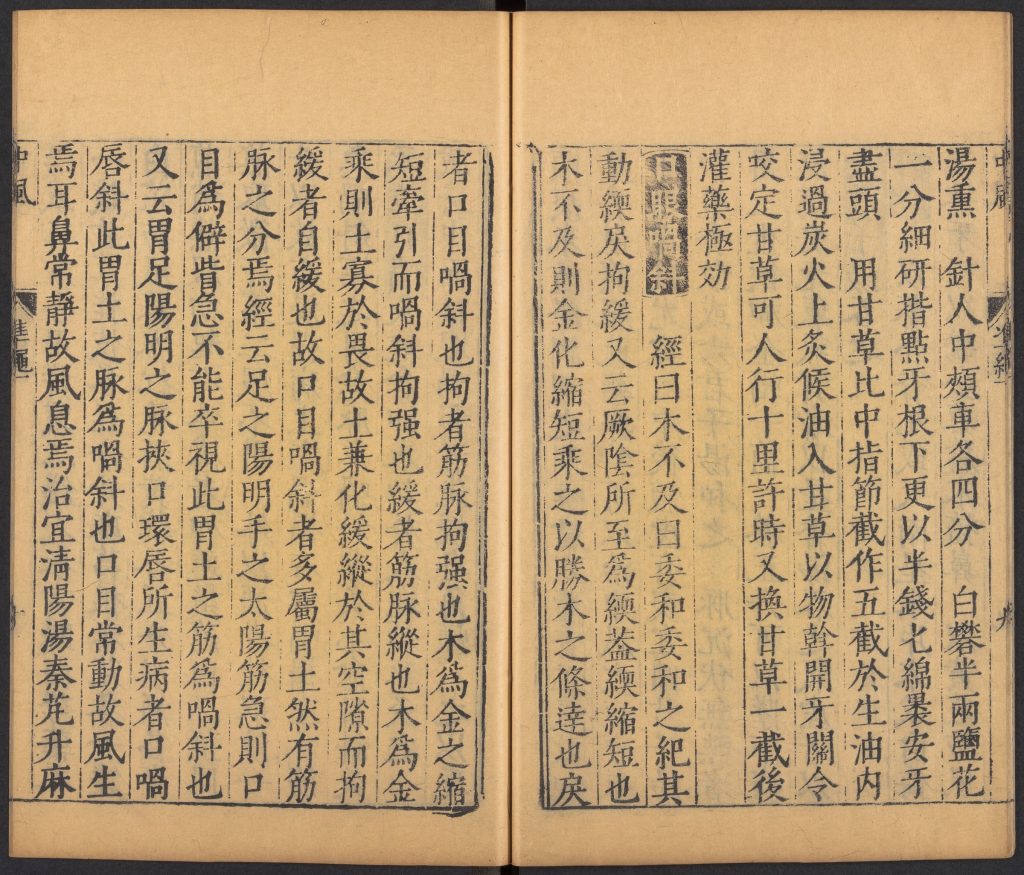 湯熏　針人中頰車各四分　白礬半兩鹽花
一分細研揩點牙根下更以半錢匕綿裹安牙
盡頭　用甘草比中指節截作五截於生油内
浸過炭火上炙候油入甘草以物斡開牙關令
咬定甘草可人行十里許時又換甘草一截後
灌藥極効
口眼喎斜　經曰木不及曰委和委和之紀其
動緛戾拘緩又云厥陰所至為緛蓋緛縮短也
木不及則金化縮短乘之以勝木之條達也戾
者口目喎斜也拘者筋脉拘强也木為金之縮
短牽引而喎斜拘强也緩者筋脉縱也木為金
乘則土寡於畏故土兼化緩縱於其空隙而拘
緩者自緩也故口目喎斜者多屬胃土然有筋
脉之分焉經云足之陽明手之太陽筋急則口
目為僻眥急不能卒視此胃土之筋為喎斜也
又云胃足陽明之脉挾口環唇所生病者口喎
唇斜此胃土之脉為喎斜也口目常動故風生
焉耳鼻常靜故風息焉治宜清陽湯秦艽升麻
中風
準繩